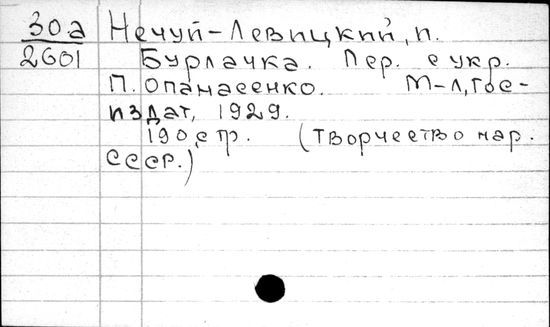 30а Нечуй-Левицкий, п.
2601 Бурлачка. Пер. с укр.
П. Опанасенко. М-Л, Гос-
издат, 1929.
190 стр. (Творчество нар.
СССР.)